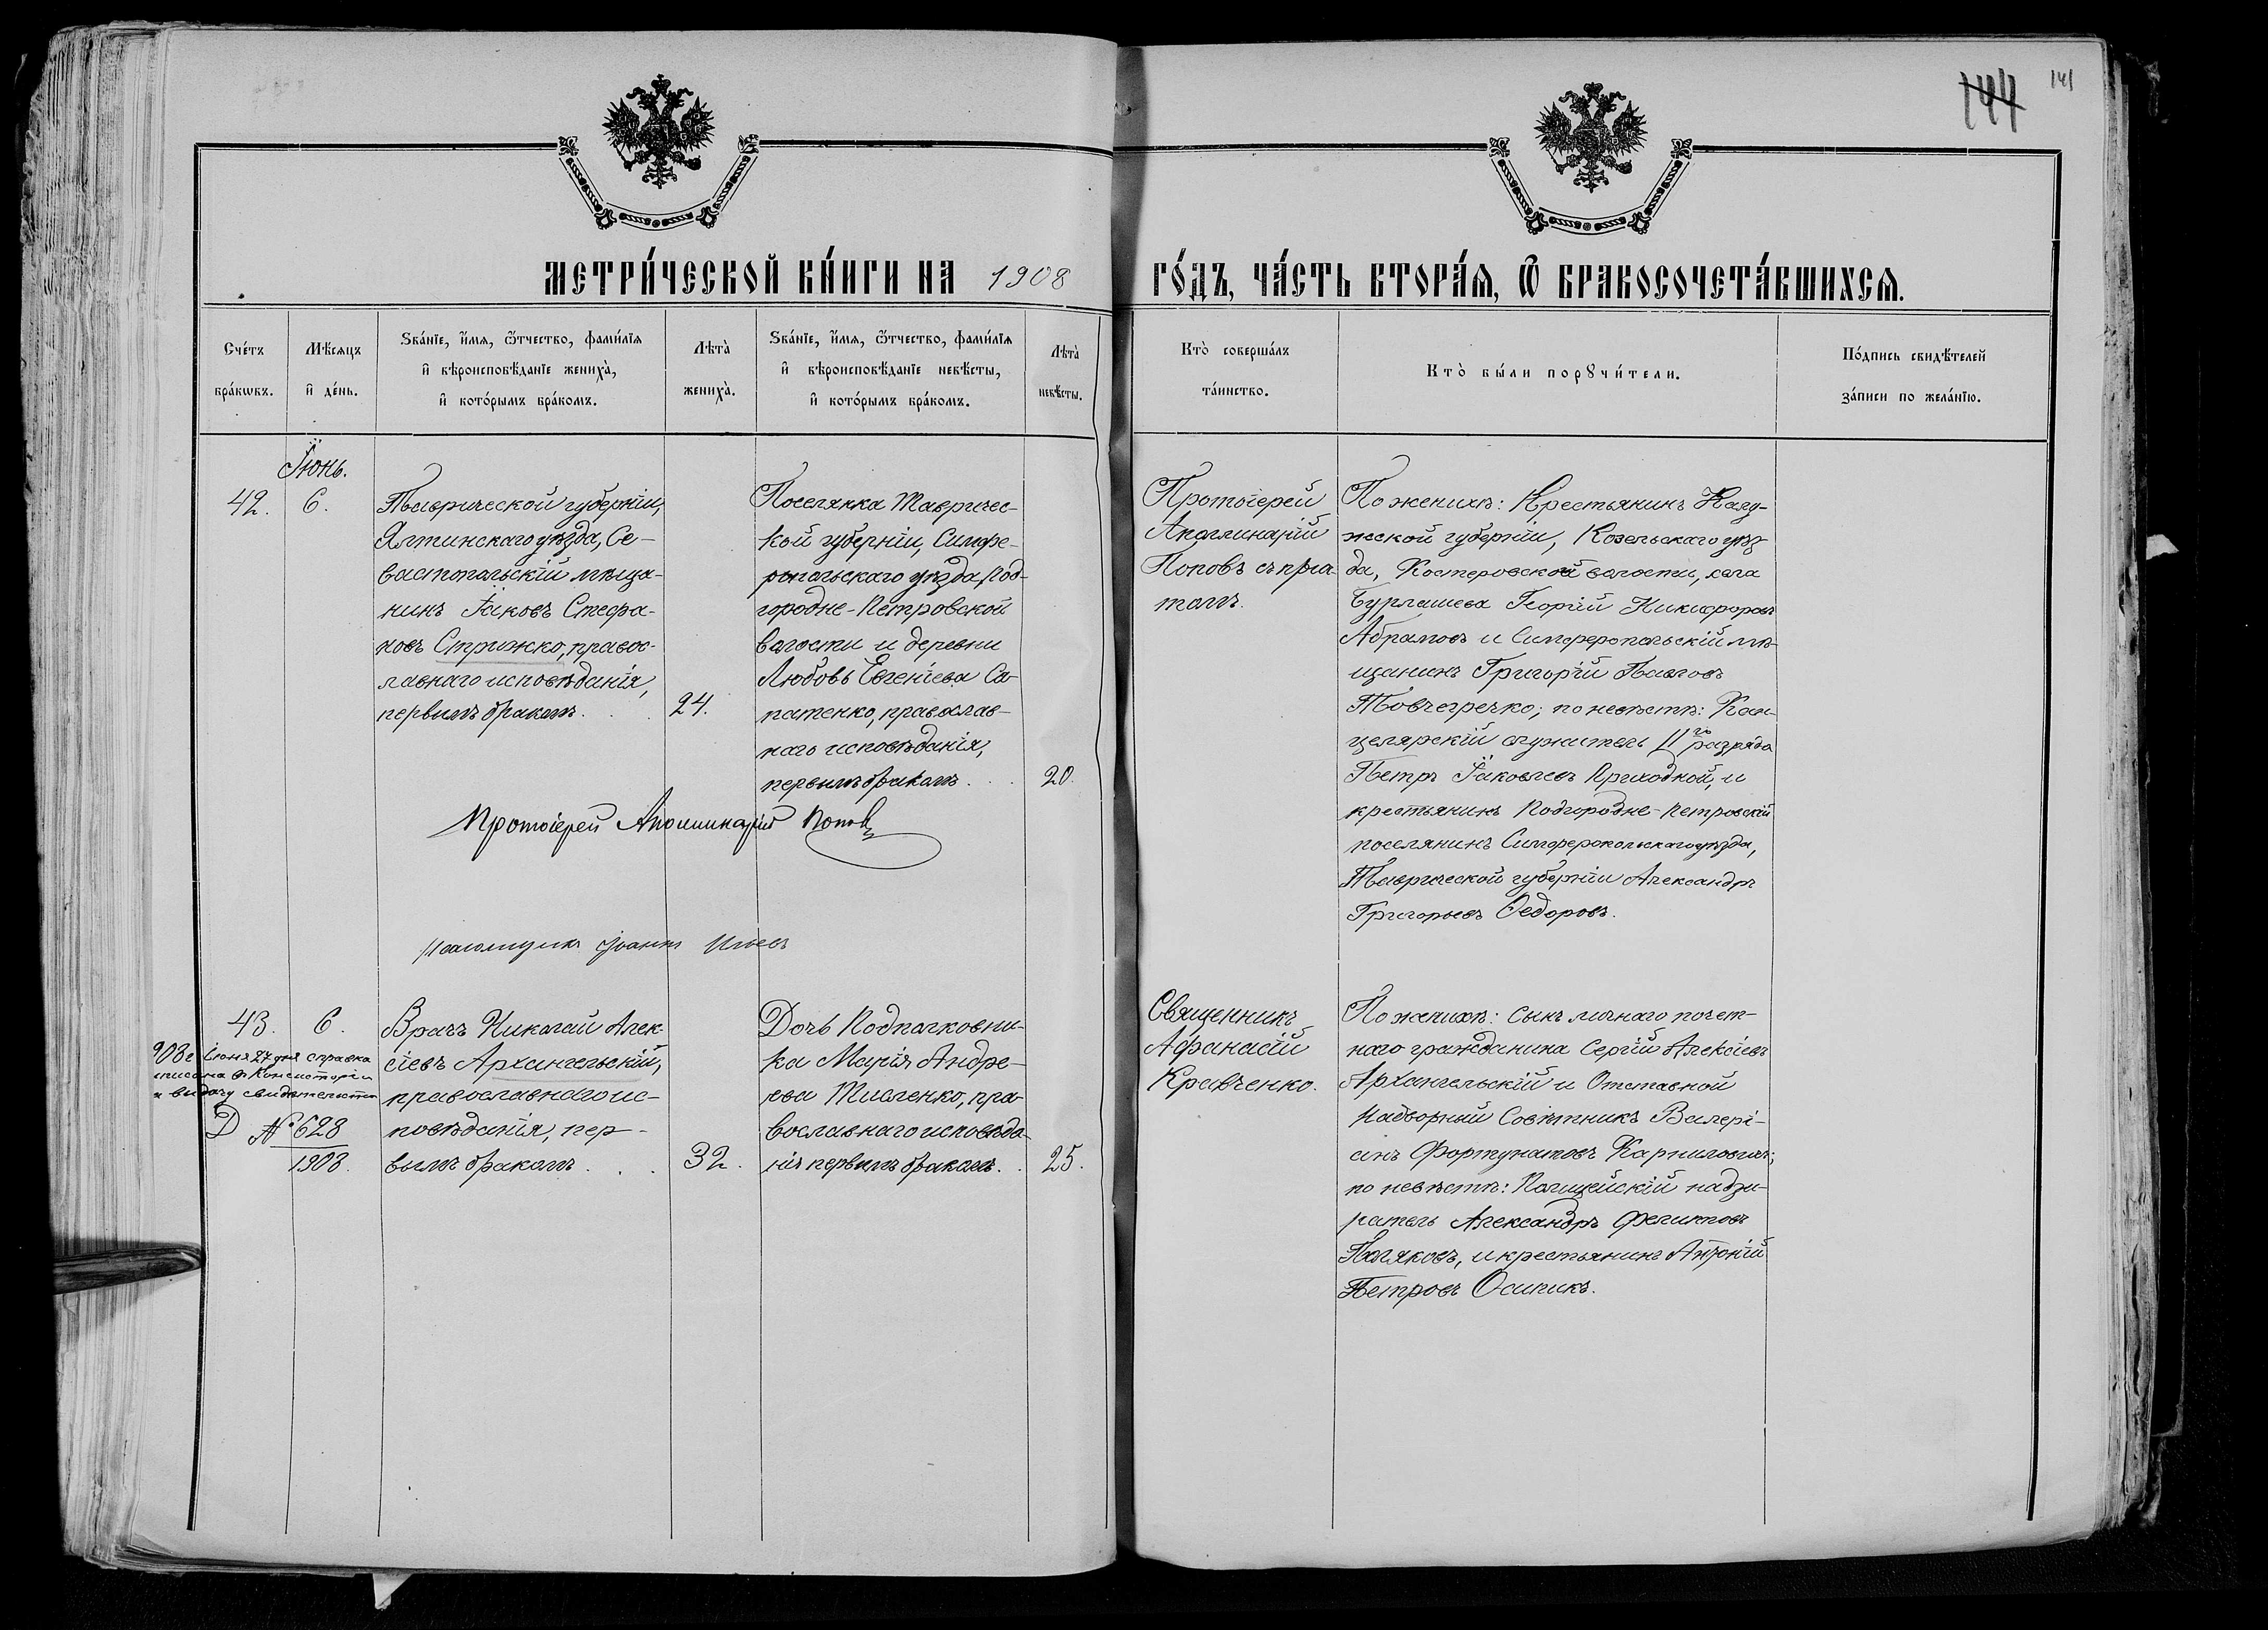 144
141
МЕТРИ́ЧЕСКОЙ КНИ́ГИ НА 1908 ГО́ДЪ, ЧА́СТЬ ВТОРА́Ѧ, Ѽ БРАКОСОЧЕТА́ВШИХСѦ.
Сче́тъ бра́кѡвъ.
Мѣ́сѧцъ и҆ де́нь.
Ѕва́нїе, и҆́мѧ, ѻ҆́тчество, фами́лїѧ
и҆ вѣроисповѣ́данїе жениха̀,
и҆ кото́рымъ бра́комъ.
Лѣта̀ жениха̀.
Ѕва́нїе, и҆́мѧ, ѻ҆́тчество, фами́лїѧ
и҆ вѣроисповѣ́данїе невѣ́сты,
и҆ кото́рымъ бра́комъ.
Лѣта̀ невѣ́сты.
Кто̀ соверша́лъ
та́инство.
Кто̀ бы́ли порꙋчи́тели.
По́дпись свидѣ́телей
за́писи по жела́нїю.
Іюнь.
42.
6.
Таврической губерніи,
Ялтинскаго уѣзда, Се-
вастопольскій мѣща-
нинъ Іаковъ Стефа-
новъ Стрижко, правос-
лавнаго исповѣданія,
первымъ бракомъ . . .
24.
Поселянка Тавричес-
кой губерніи, Симфе-
ропольскаго уѣзда, Под-
городне-Петровской
волости и деревни
Любовь Евгеніева Са-
патенко, православ-
наго исповѣданія,
первымъ бракомъ . . .
20.
Протоіерей
Аполлинарій
Поповъ съ прич-
томъ.
По женихѣ: Крестьянинъ Калу-
жской губерніи, Козельскаго уѣз-
да, Костеровской волости, села
Бурлашева Георгій Никифоровъ
Абрамовъ и Симферопольскій мѣ-
щанинъ Григорій Павловъ
Товчегречко; по невѣстѣ: Кан-
целярскій служитель II го разряда
Петръ Іаковлевъ Приходкой, и
крестьянинъ Подгородне-Петровскій
поселянинъ Симферопольскаго уѣзда,
Таврической губерніи Александръ
Григорьевъ Ѳедоровъ.
Протоіерей Аполлинарій Поповъ
Псаломщикъ Іоаннъ
43.
6.
908 г. Іюня 27 дня справка
писана въ Консисторіи
и выдачу свидѣтельства
Д № 628
1908.
Врачъ Николай Алек-
сіевъ Архангельскій,
православнаго ис-
повѣданія, пер-
вымъ бракомъ . . .
32.
Дочь Подполковни-
ка Марія Андре-
ева Тисленко, пра-
вославнаго исповѣда-
нія первымъ бракомъ . .
25.
Священникъ
Аѳанасій
Кравченко.
По женихѣ: сынъ личнаго почет-
наго гражданина Сергій Алексіевъ
Архангельскій и Отставной
Надворный Совѣтникъ Валері-
анъ Фортунатовъ Карниловичъ;
по невѣстѣ: Полицейскій надзи-
ратель Александръ Феликсовъ
Поляковъ, и крестьянинъ Антоній
Петровъ Осипикъ.